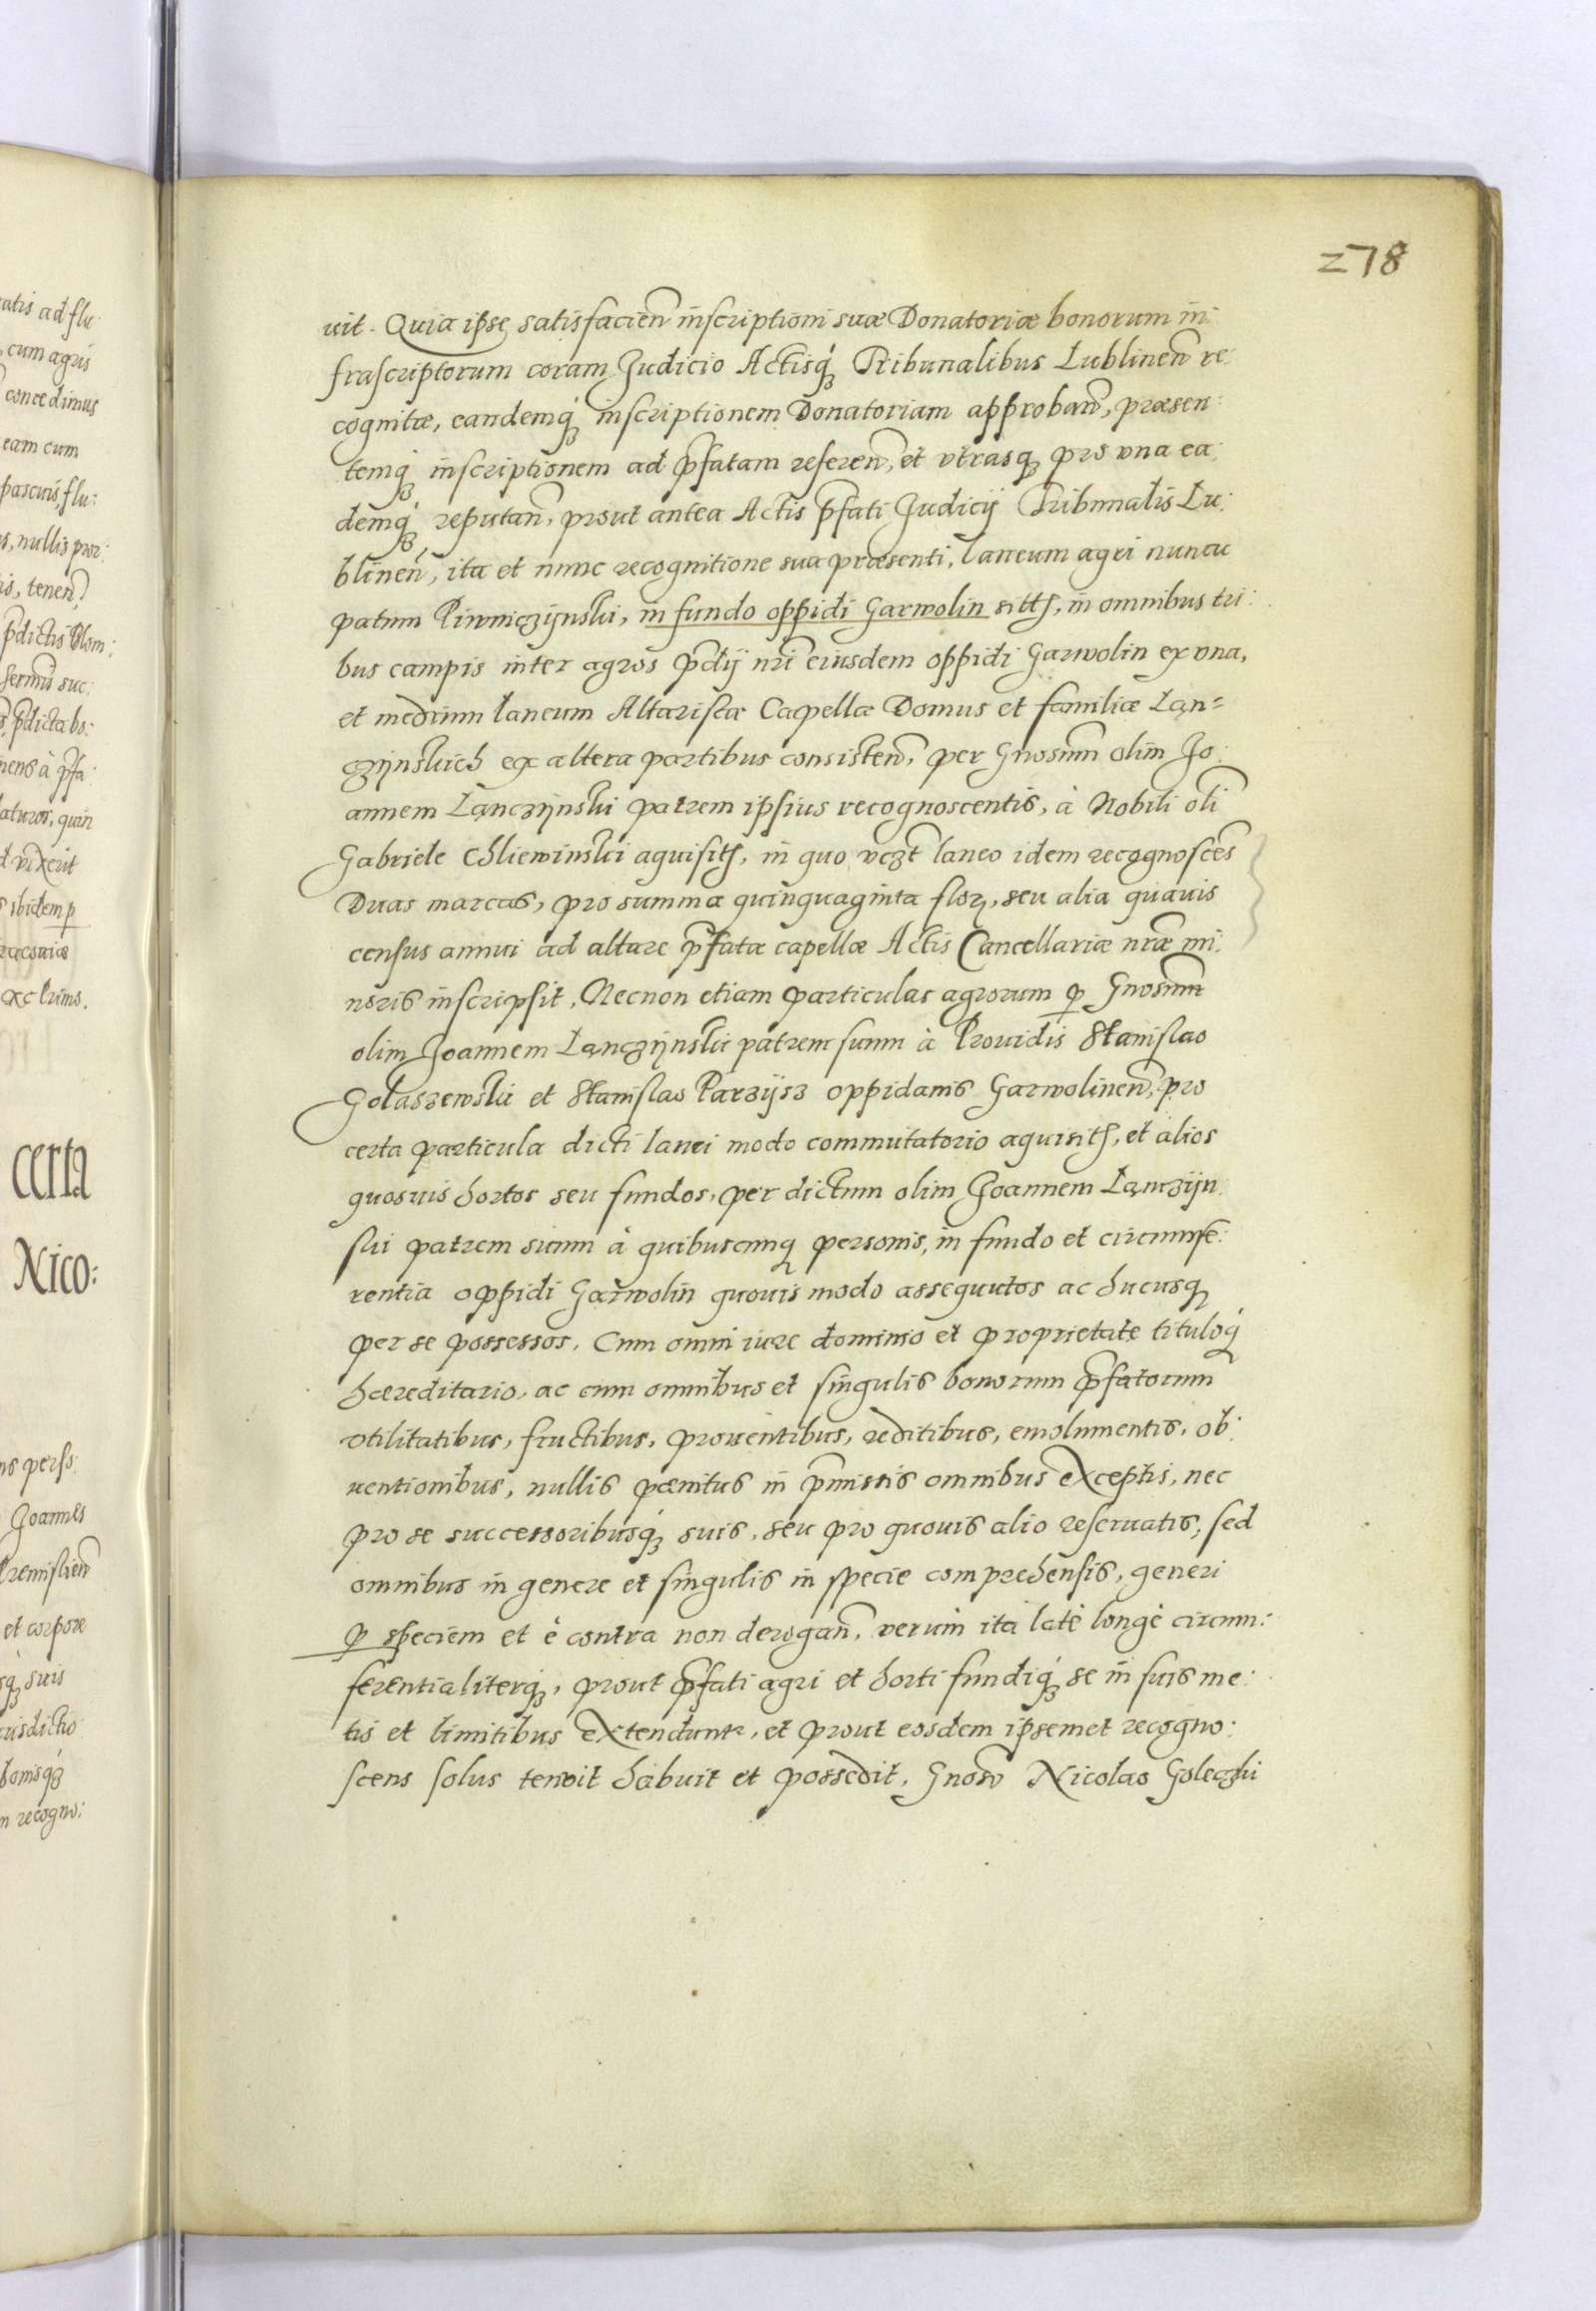 278
uit. Quia ipse satisfacień inscriptioni suæ Donatoriæ bonorum in:
frascriptorum coram Judicio Actisq́ʒ Tribunalibus Lublineń re:
cognitæ, eandemq́ʒ inscriptionem Donatoriam approbań, præsen:
temq́ʒ inscriptionem ad p̄fatam refereń, et vtrasqʒ pro vna ea:
demq́ʒ reputań, prout antea Actis p̄fati Judicij Tribunalis Lu:
blineń, ita et nunc recognitione sua præsenti, laneum agri nuncu
patum Piwniczÿnski, in fundo oppidi Garwolin sitũ, in omnibus tri:
bus campis inter agros p̄dij nr̄i eiusdem oppidi Garwolin ex vna,
et medium laneum Altaristæ Capellæ Domus et familiæ Łąn=
czÿnskich ex altera partibus consisteń, per Gnosum̄ olim Jo:
annem Łanczÿnski patrem ipsius recognoscentis, à Nobili oli̅
Gabriele Chliewinski aquisitũ, in quo vczt̄ laneo idem recognosces̄
Duas marcas, pro summa quinquaginta florʒ, seu alia quauis
census annui ad altare p̄fatæ capellæ Actis Cancellariæ nr̄æ mi:
noris inscripsit, Necnon etiam particulas agrorum ꝑ Gnosum̄
olim Joannem Łąnczÿnski patrem suum à Prouidis Stanislao
Gołaszewski et Stanislao Parzÿsz oppidanis Garwolineń, pro
certa particula dicti lanei modo commutatorio aquisitũ, et alios
quosuis hortos seu fundos, per dictum olim Joannem Łąnczÿn
ski patrem suum à quibuscunqʒ personis, in fundo et circumfe:
rentia oppidi Garwolin quouis modo assequutos ac hucusqʒ
per se possessos. Cum omni iure dominio et proprietate tituloq́ʒ
hæreditario, ac cum omnibus et singulis bonorum p̄fatorum
vtilitatibus, fructibus, prouentibus, reditibus, emolumentis, ob:
uentionibus, nullis pænitus in p̄missis omnibus exceptis, nec
pro se successoribusq́ʒ suis, seu pro quouis alio reseruatis, sed
omnibus in genere et singulis in specie comprehensis, generi
ꝑ speciem et è contra non derogań, verùm ita latè longè circum:
ferentialiterqʒ, prout p̄fati agri et horti fundiq́ʒ se in suis me:
tis et limitibus extendunt, et prout eosdem ipsemet recogno:
scens solus tenuit habuit et possedit, Gnoso Nicolao Goleczki
certa
Nico: